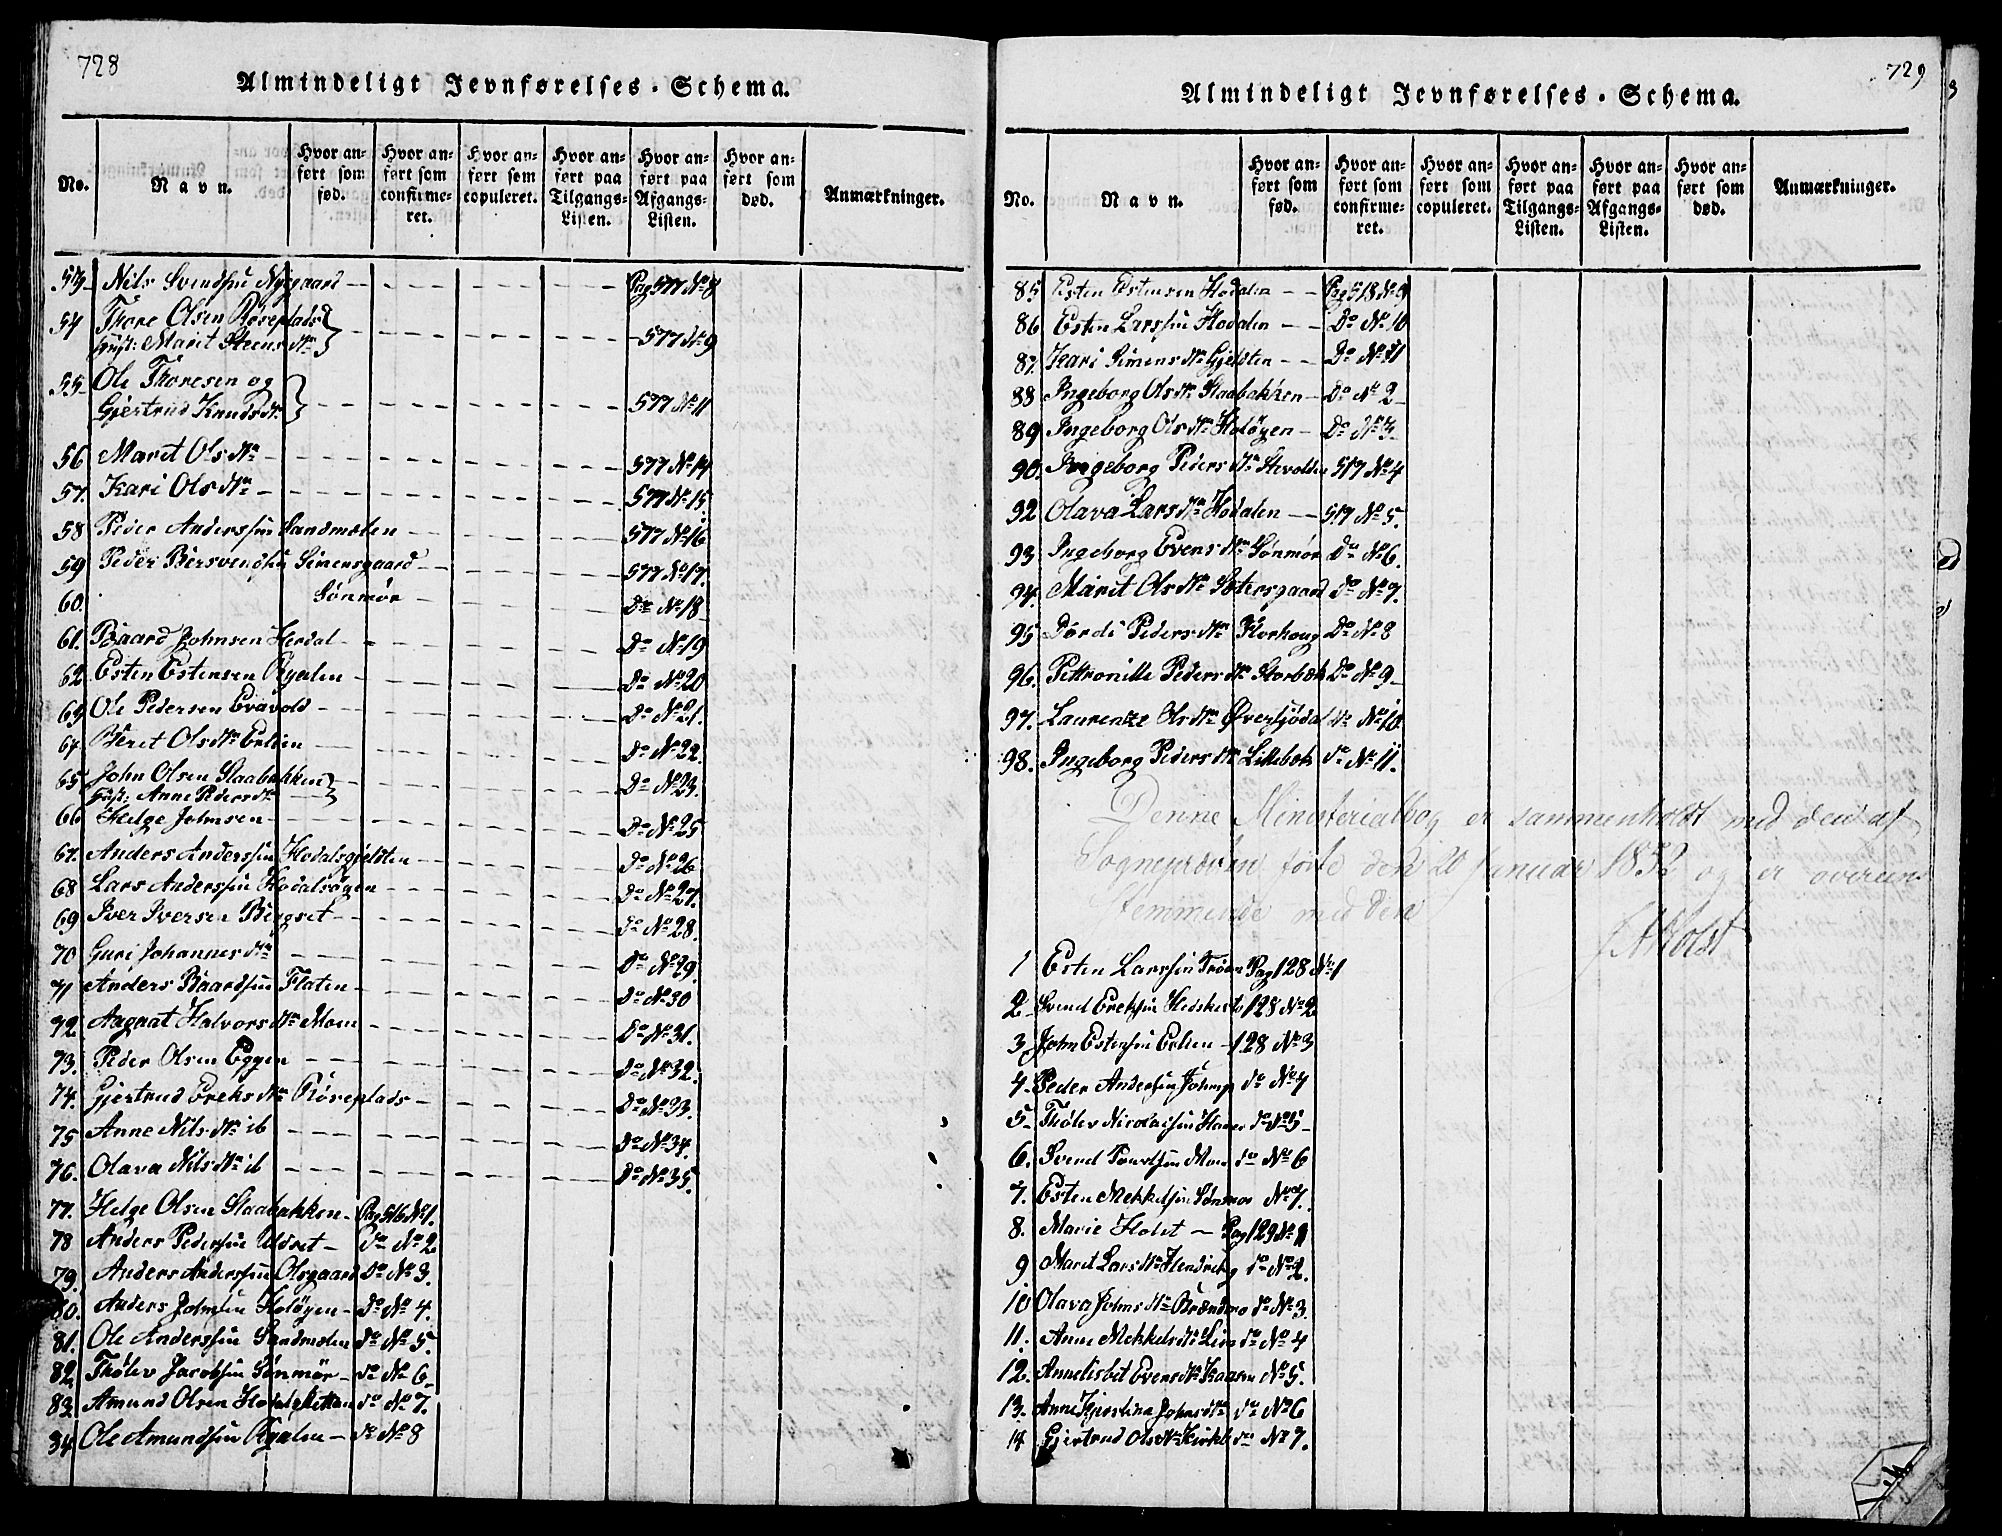 728
Almindeligt Jevnførelses-Schema.
No.
Navn.
Hvor anført som fød.
Hvor anført som confirmeret.
Hvor anført som copuleret.
Hvor anført paa Tilgangs-Listen.
Hvor anført paa Afgangs-Listen.
Hvor anført som død.
Anmærkninger.
53 Nils Svendsen Nygaard Pag 577 No 8
54 Thore Olsen Røseplads
Hust: Marit Steensdtr 577 No 9
55 Ole Thoresen og
Gjertrud Knudsdtr 577 No 11
56 Marit Olsdtr 577 No 14
57. Kari Olsdtr 577 No 15
58 Peder Anderssen Sandmoten 577 No 16
59 Peder Bersvendsen Simensgaard 577 No 17.
60. Sønmør Do No 18
61. Baard Johnsen Hodal Do No 19
62 Esten Estensen Rgalen Do No 20
63 Ole Pedersen Evavold Do No 21.
64 Beret Olsdtr Erlien Do No 22.
65 John Olsen Staabakken
Hust: Anne Pedersdtr Do No 23.
66 Helge Johnsen Do No 25
67. Anders Anderssen Hodalsgjelten Do No 26
68 Lars Anderssen Hodalsøyen Do No 27.
69 Iver Iversen Bergset Do No 28.
70 Guri Johannesdtr Do No 29.
71 Anders Baardsen Flaten Do No 30
72 Aagaat Halvorsdtr Moen Do No 31.
73. Peder Olsen Eggen Do No 32.
74. Gjertrud Ereksdtr Røseplads Do No 33.
75 Anne Nilsdtr ib Do No 34.
76. Olava Nilsdtr ib Do No 35.
77. Helge Olsen Staabakken Pag 516 No 1.
78 Anders Pedersen Udset Do No 2
79. Anders Anderssen Olsgaard Do No 3.
80. Anders Johnsen Holøyen Do No 4.
81. Ole Anderssen Sandmoten Do No 5.
82 Tholev Jacobsen Sønmør do No 6
83 Amund Olsen do No 7.
84 Ole Amundsen Rgalen do No 8
729
Almindeligt Jevnførelses-Schema.
No.
Navn.
Hvor anført som fød.
Hvor anført som confirmeret.
Hvor anført som copuleret.
Hvor anført paa Tilgangs-Listen.
Hvor anført paa Afgangs-Listen.
Hvor anført som død.
Anmærkninger.
85 Esten Estensen Hodalen Pag 518 No 9
86 Esten Larssen Hodalen Do No 10
87. Kari Simensdtr Gjelten Do No 11
88 Ingeborg Olsdtr Staabakken Do No 2
89 Ingeborg Olsdtr Holøyen Do No 3.
90. Ingeborg Pedersdtr 517 No 4
92 Olava Larsdtr Hodalen 517 No 5.
93 Ingeborg Evensdtr Sønmør Do No 6.
94. Marit Olsdtr Do No 7.
95 Dordi Pedersdtr Horhoug Do No 8
96. Pettronille Pedersdtr Storbæk Do No 9
97. Laurentze Olsdtr Øversjødal do No 10
98. Ingeborg Pedersdtr Lillebæk do No 11.
Denne Ministerialbog er sammenholdt med den af
Sognepræsten førte den 20 Januar 1832 og er overeens
stemmende med den
Holst
1 Esten Larssen Trøen Pag 128 No 1
2 Svend Ereksen 128 No 2
3 John Estensen Erlien 128 No 3
4. Peder Andersen do No 4
5 Tholev Nicolaisen do No 5
6. Svend Moen do No 6
7. Esten Mekkelsen Sønmør No 7.
8. Marie Holst Pag 129 No 1
9 Marit Larsdtr do No 2.
10 Olava Johnsdtr Brændmo do No 3.
11. Anne Mekkelsdtr Lien do No 4
12. Annelisbet Evensdtr No 5.
13. Anne Kjerstina Johnsdtr do No 6
14 Gjertrud Olsdtr do No 7.